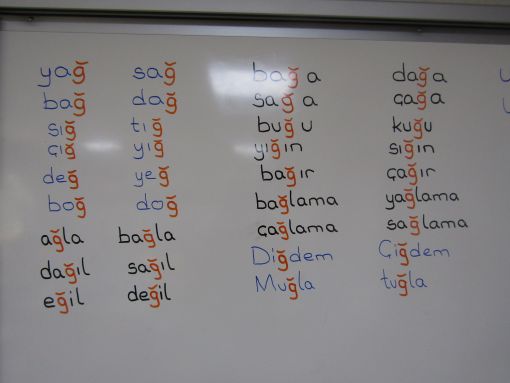 yağ sağ bağ a dağ a
bağ dağ sağ a çağ a
sığ tığ buğ u kuğu
çığ yığ yığın sığın
değ yeğ bağır çağır
boğ doğ bağlama yağlama
ağla bağla çağlama sağlama
dağıl sağıl Diğdem Çiğdem
eğil değil Muğla tuğla